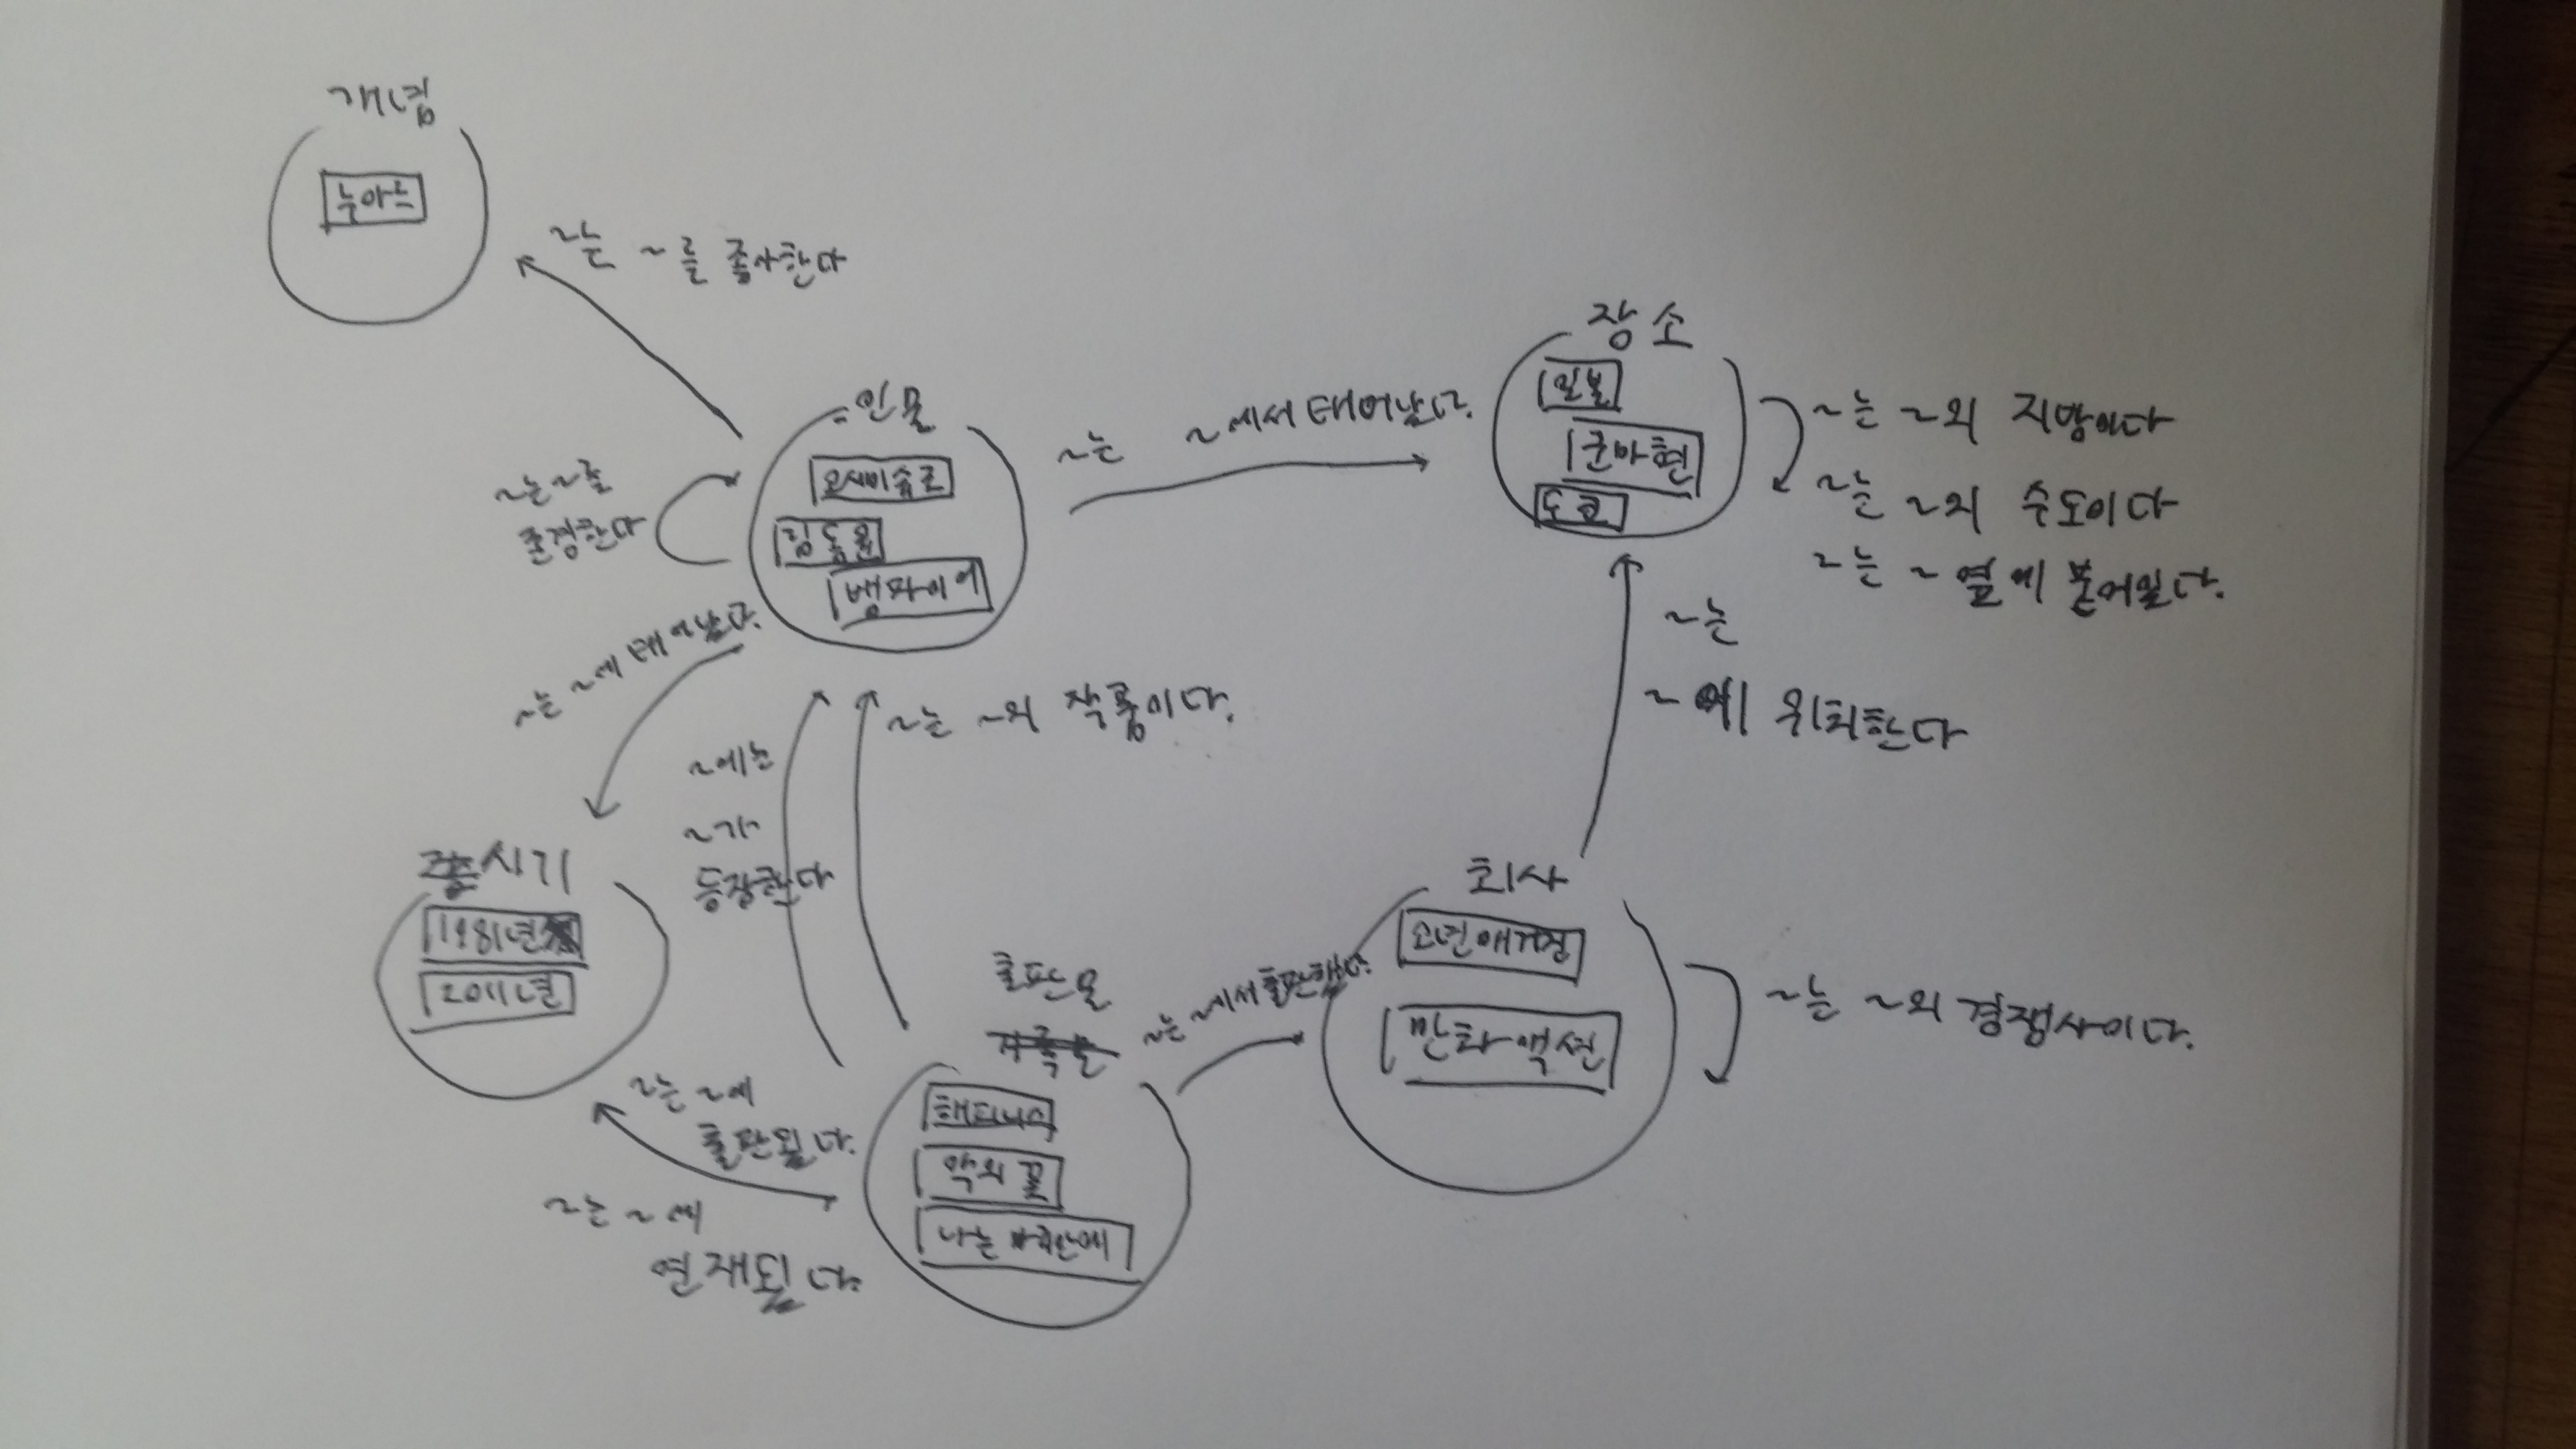 개념
누아르
~는 ~를 좋아한다
인물
오시미슈조
뱀파이어
~는 ~를
존경한다
~는 ~에서 태어났다.
장소
일본
군마현
도쿄
~는 ~의 지방이다
~는 ~의 수도이다
~는 ~옆에 붙어있다.
~는
~에 위치한다
~는 ~에 태어났다.
~에는
~가
등장한다
~는 ~의 작품이다.
시기
1981년
2011년
~는 ~에
출판됬다.
~는 ~에
연재됬다.
출판물
해피니스
악의 꽃
나는 마리안에
~는 ~에서 출판했다.
회사
소년매거진
만화액션
~는 ~의 경쟁사이다.